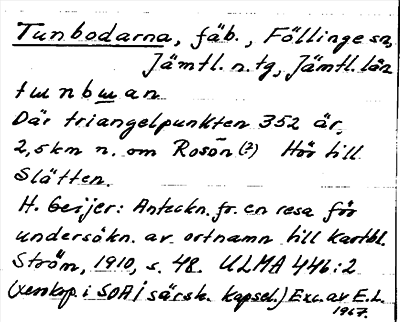 Tunbodarna, fäb., Föllinge sn,
Jämtl. n. tg, Jämtl. län
tɯnbɯan
Där triangelpunkten 352 är,
2,5 km n. om Rosön (?) Hör till
Slätten.
H. Geijer: Anteckn. fr. en resa för
undersökn. av ortnamn till kartbl.
Ström, 1910, s. 48. ULMA 446:2
(xerokop. i SOA i särsk. kapsel.) Exc. av E.L.
1967.